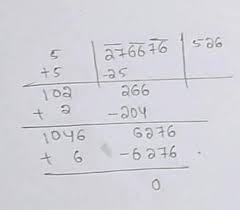 5 | 276676 | 526
+5 | -25
102 266
+ 2 -204
1046 6276
+ 6 -6276
0